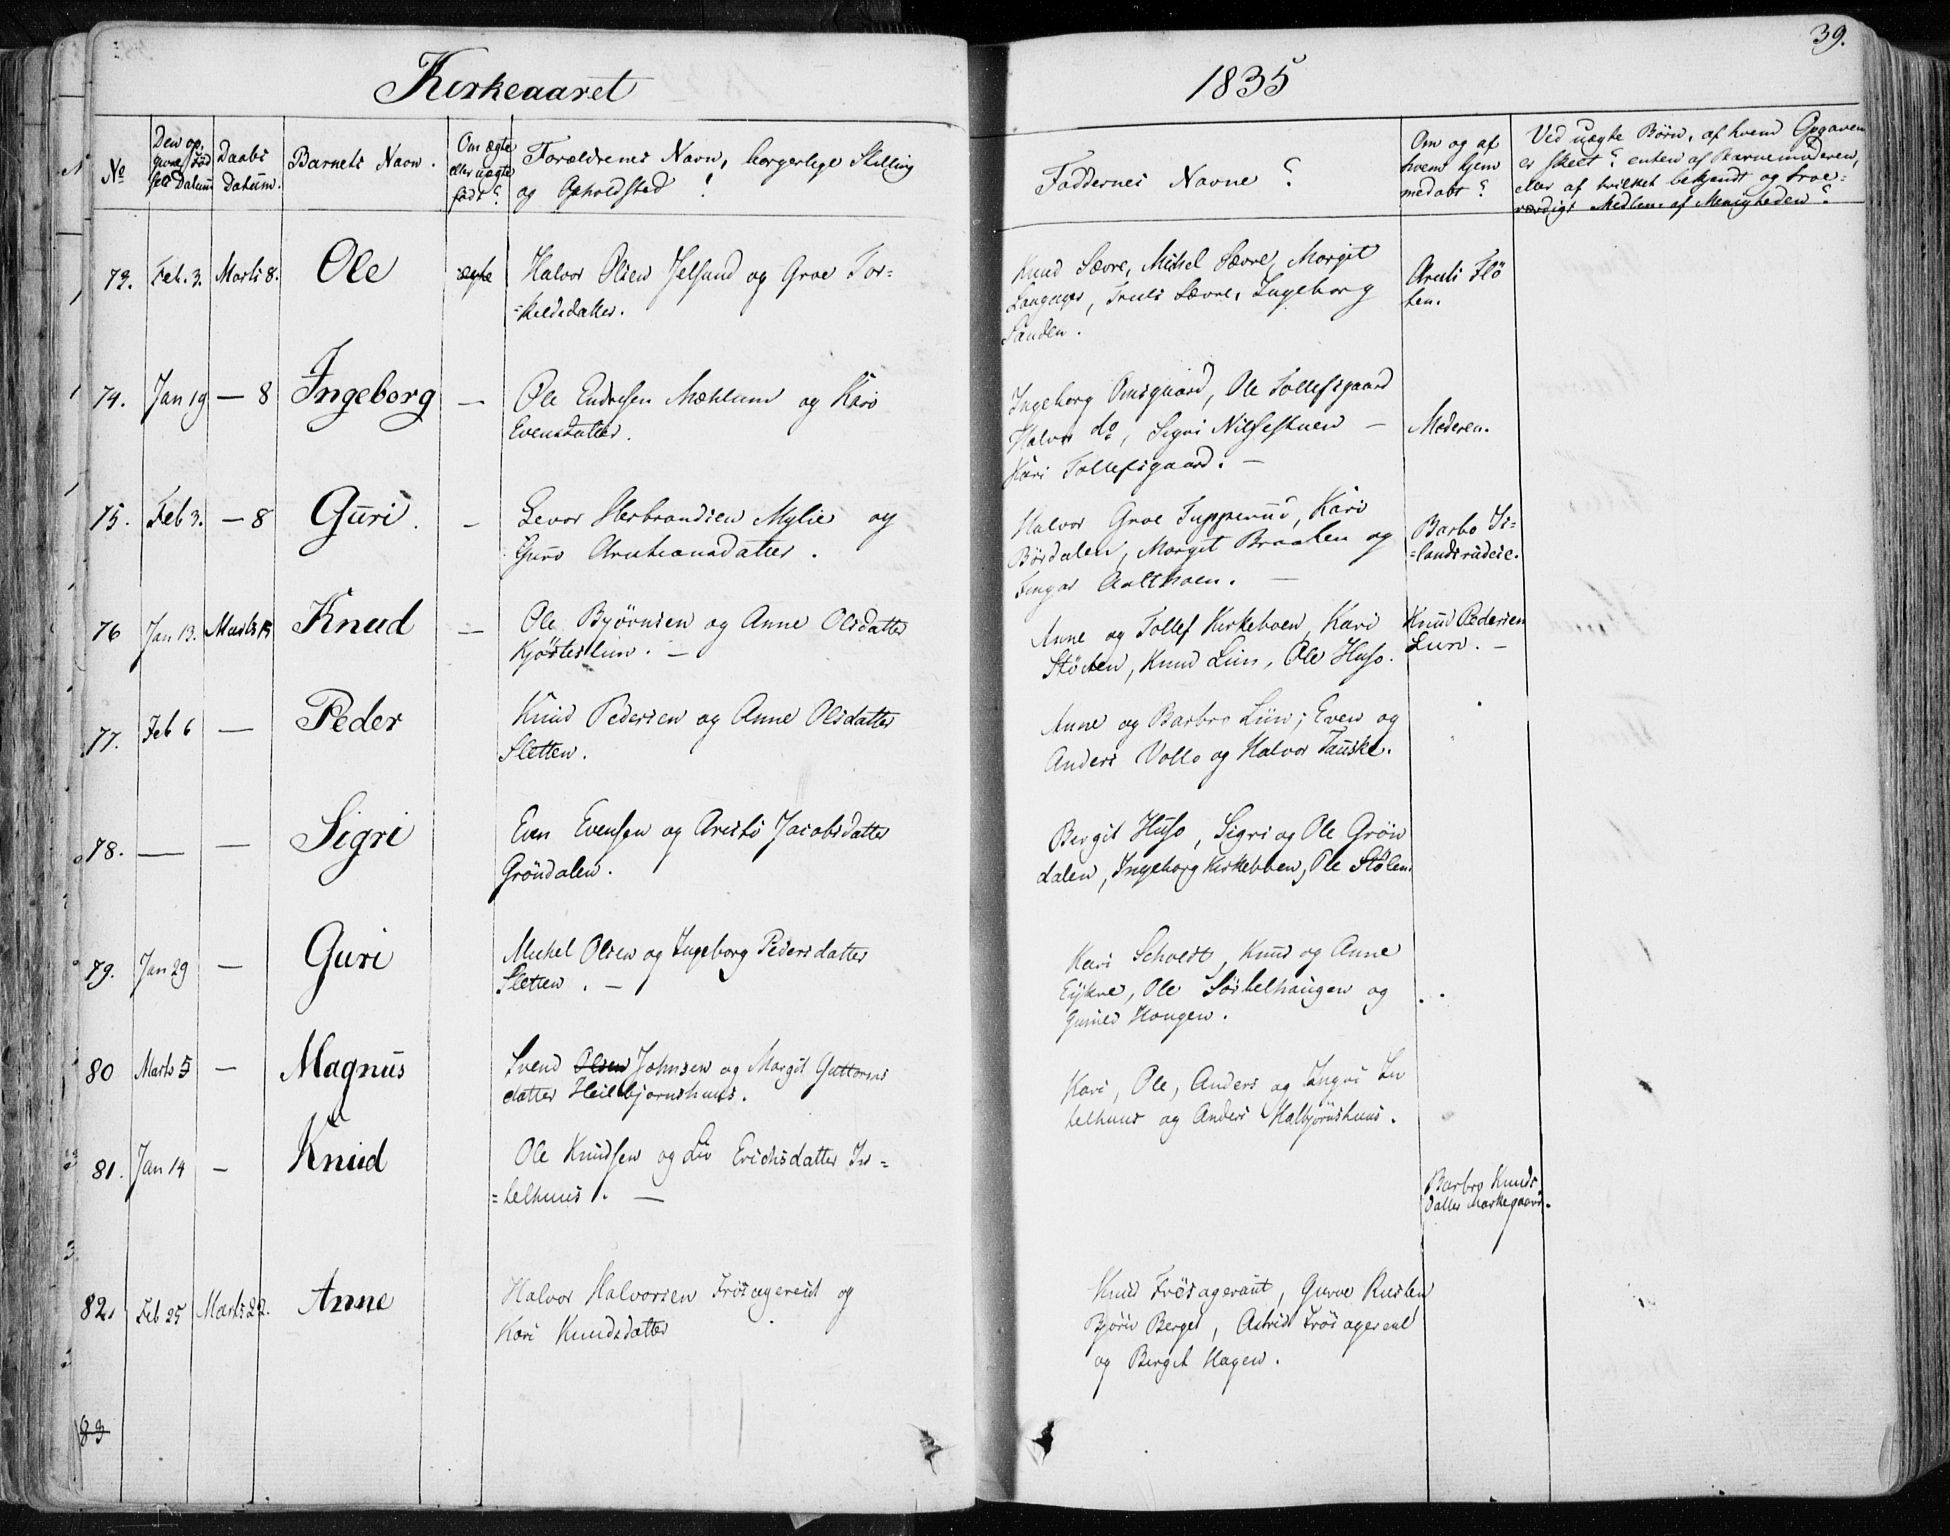 Kirkeaaret
1835
39.
No
Den op,
givne Fød
sels Datum
Daabs
Datum.
Barnets Navn.
Om ægte
eller uægte
født?
Forældrenes Navn, borgerlige Stilling
og Opholdsted !
Faddernes Navne ?
Om og af
hvem hjem
medøbt ?
Ved uægte Børn, af hvem Opgaven
er skeet ? enten af Barnemoderen,
eller af hvilket bekjendt og troe=
værdigt Medlem af Menigheden ?
73. Feb. 3. Marts 8. Ole ægte Halvor Olsen og Groe Tor=
=kildsdatter.
Knud Sævre, Mikel Sævre, Margit
Truls Sævre, Ingeborg
Sanden.
Flö
ten.
74. Jan 19 — 8 Ingeborg — Ole Endresen Mæhlum og Kari
Evensdatter.
Ingeborg Ole Tollefsgaard
Halvor do, Sigri Nilsestuen —
Kari Tollefsgaard. —
Moderen.
75. Feb 3. — 8 Guri. — Levor Herbrandsen Mylie og
Guro Christiansdatter.
Halvor Groe Kari
Börsdalen, Margit Braaten og
—
Barbo
76 Jan 13. Marts 15 Knud — Ole Bjørnsen og Anne Olsdatter
—
Anne og Tollef Kirkeboen, Kari
Stölen, Knud Lün, Ole Huso.
Knud Pedersen
Lün. —
77. Feb 6 — Peder Knud Pedersen og Anne Olsdatter
Sletten.
Anne og Barbro Lün; Even og
Anders Vollo og Halvor Tauske.
78. — — Sigri Even Evensen og Jacobsdatter
Gröndalen.
Bergit Huso, Sigri og Ole Grön
dalen, Ingeborg Kirkeboen, Ole Stölen.
79. Jan 29 — Guri Mikel Olsen og Ingeborg Pedersdatter
Sletten. —
Kari Knud og Anne
Eykre, Ole og
Hougen.
80 Marts 5 — Magnus Svend Olsen Johnsen og Margit Guttorms
datter Heilbjørnshuus.
Kari, Ole, Anders og
telhuus og Anders Halbjörnshuus.
81. Jan 14 — Knud Ole Knudsen og Liv Erichsdatter In=
=telhuus. —
Barbro Knuds
datter Markegaard.
82. Feb 25 Marts 22. Anne Halvor Halvorsen og
Kari Knudsdatter
Knud Gurve Rusten
Bjørn Berget, Astrid
og Bergit Hagen.
83